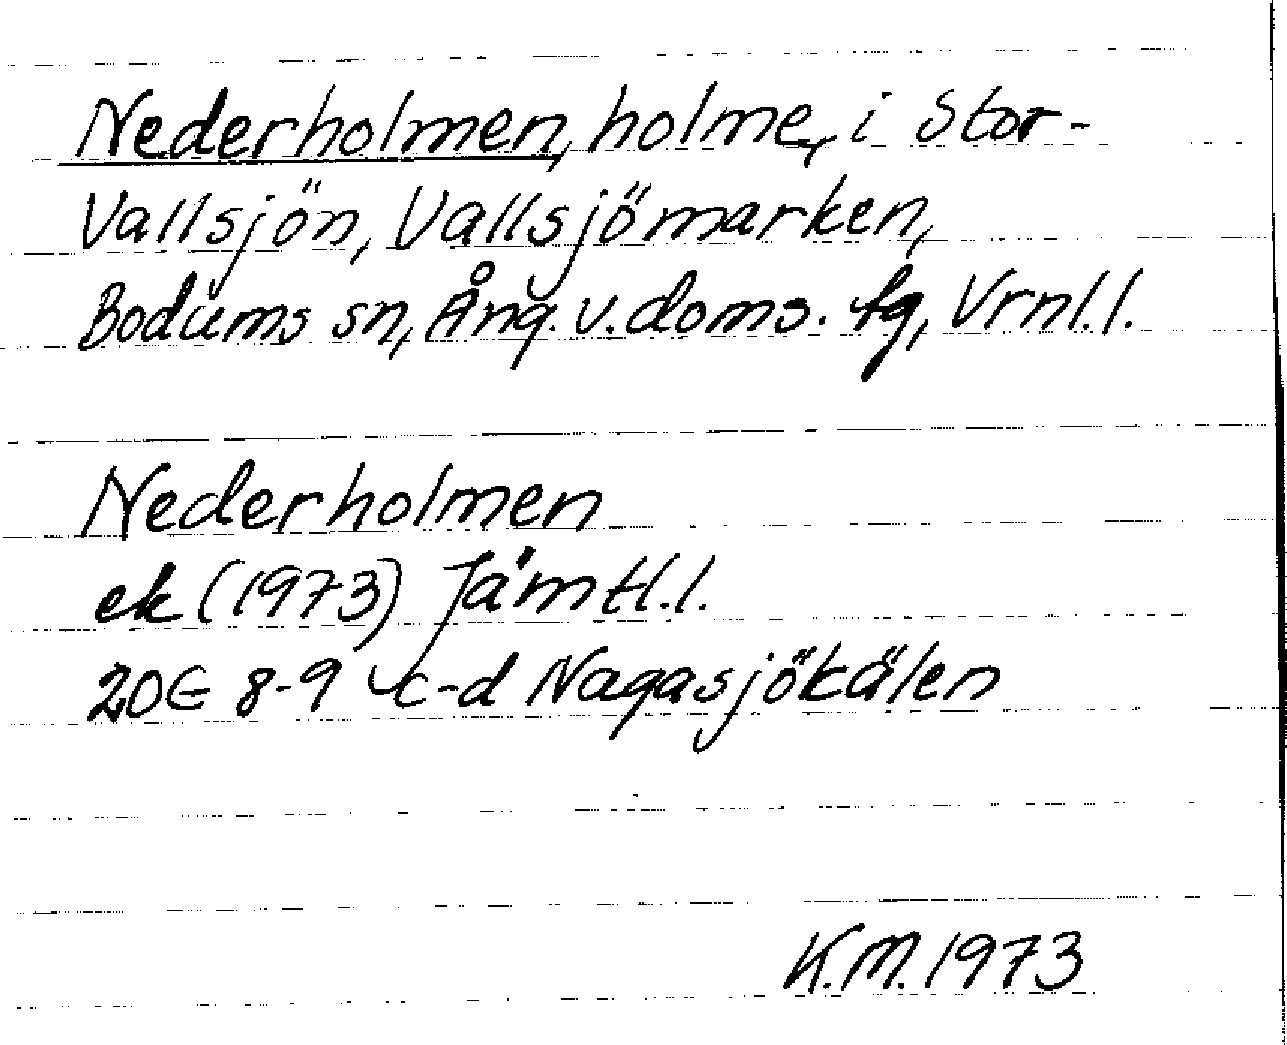 Nederholmen, holme, i Stor-
Vallsjön, Vallsjömarken,
Bodums sn, Ång. v. doms. fg, Vrnl.l.
Nederholmen
ek (1973) Jämtl.l.
20E 8-9 c-d Nagasjökälen
K.M. 1973